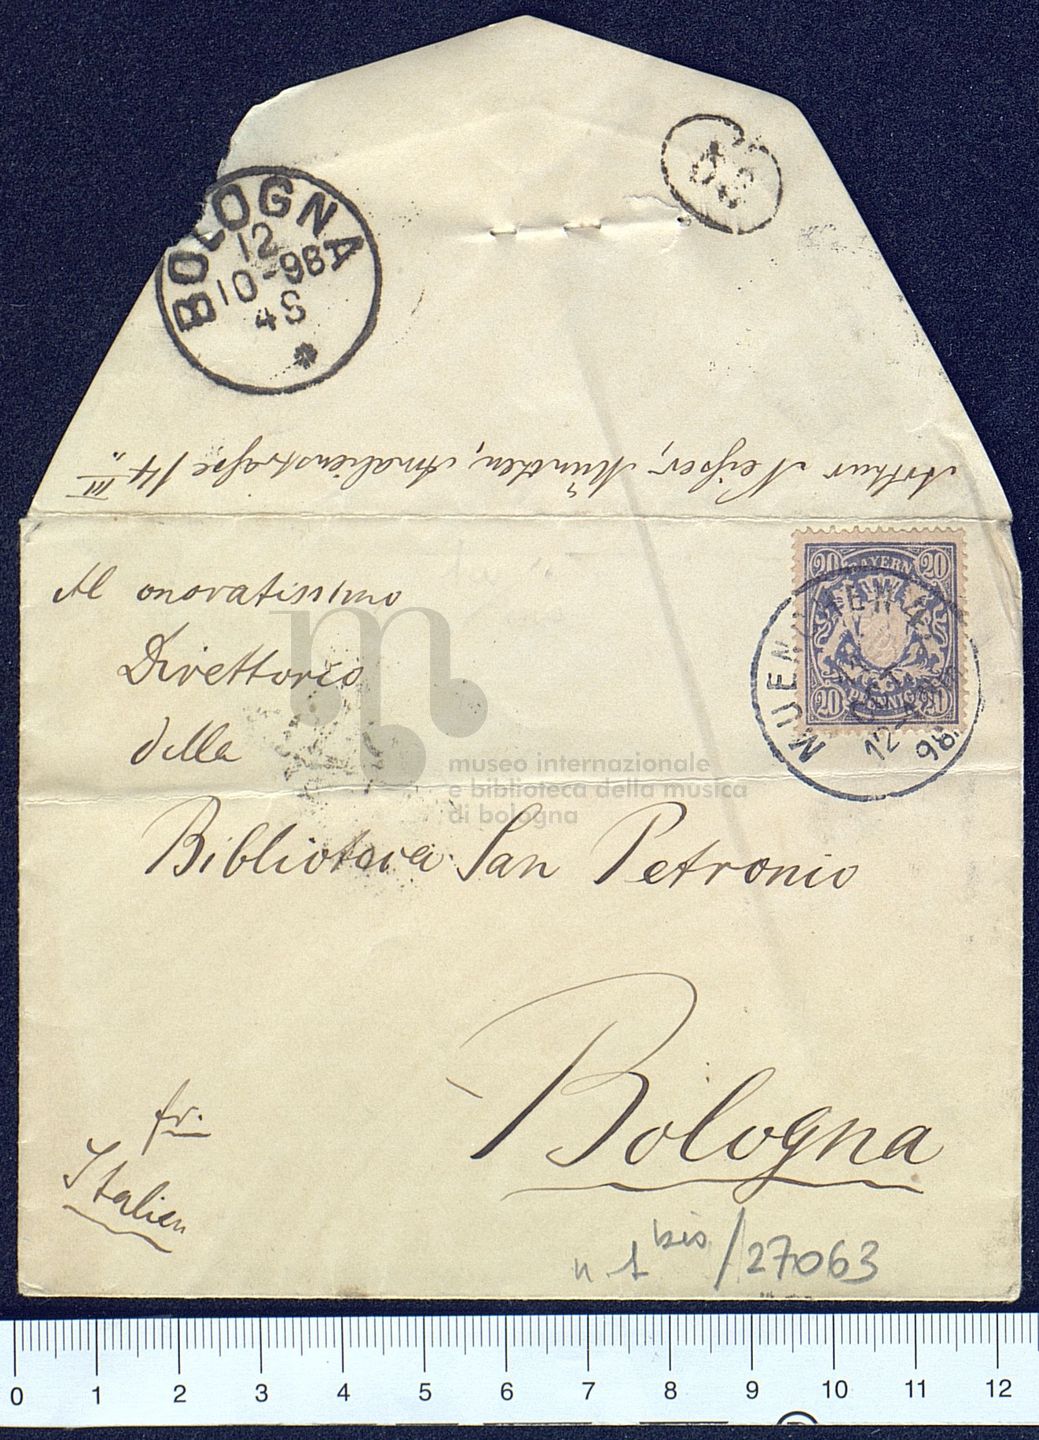 BOLOGNA
12
10-98
4S
Arthur Neisser, München, Amalienstraße 14 III
20 BAYERN 20
20 PFENNIG 20
MUENCHEN
12-1
98.
Al onoratissimo
Direttorio
della
museo internazionale
e biblioteca della musica
di bologna
Biblioteca San Petronio
Bologna
fr.
Italien
n 1 bis/27063
0 1 2 3 4 5 6 7 8 9 10 11 12